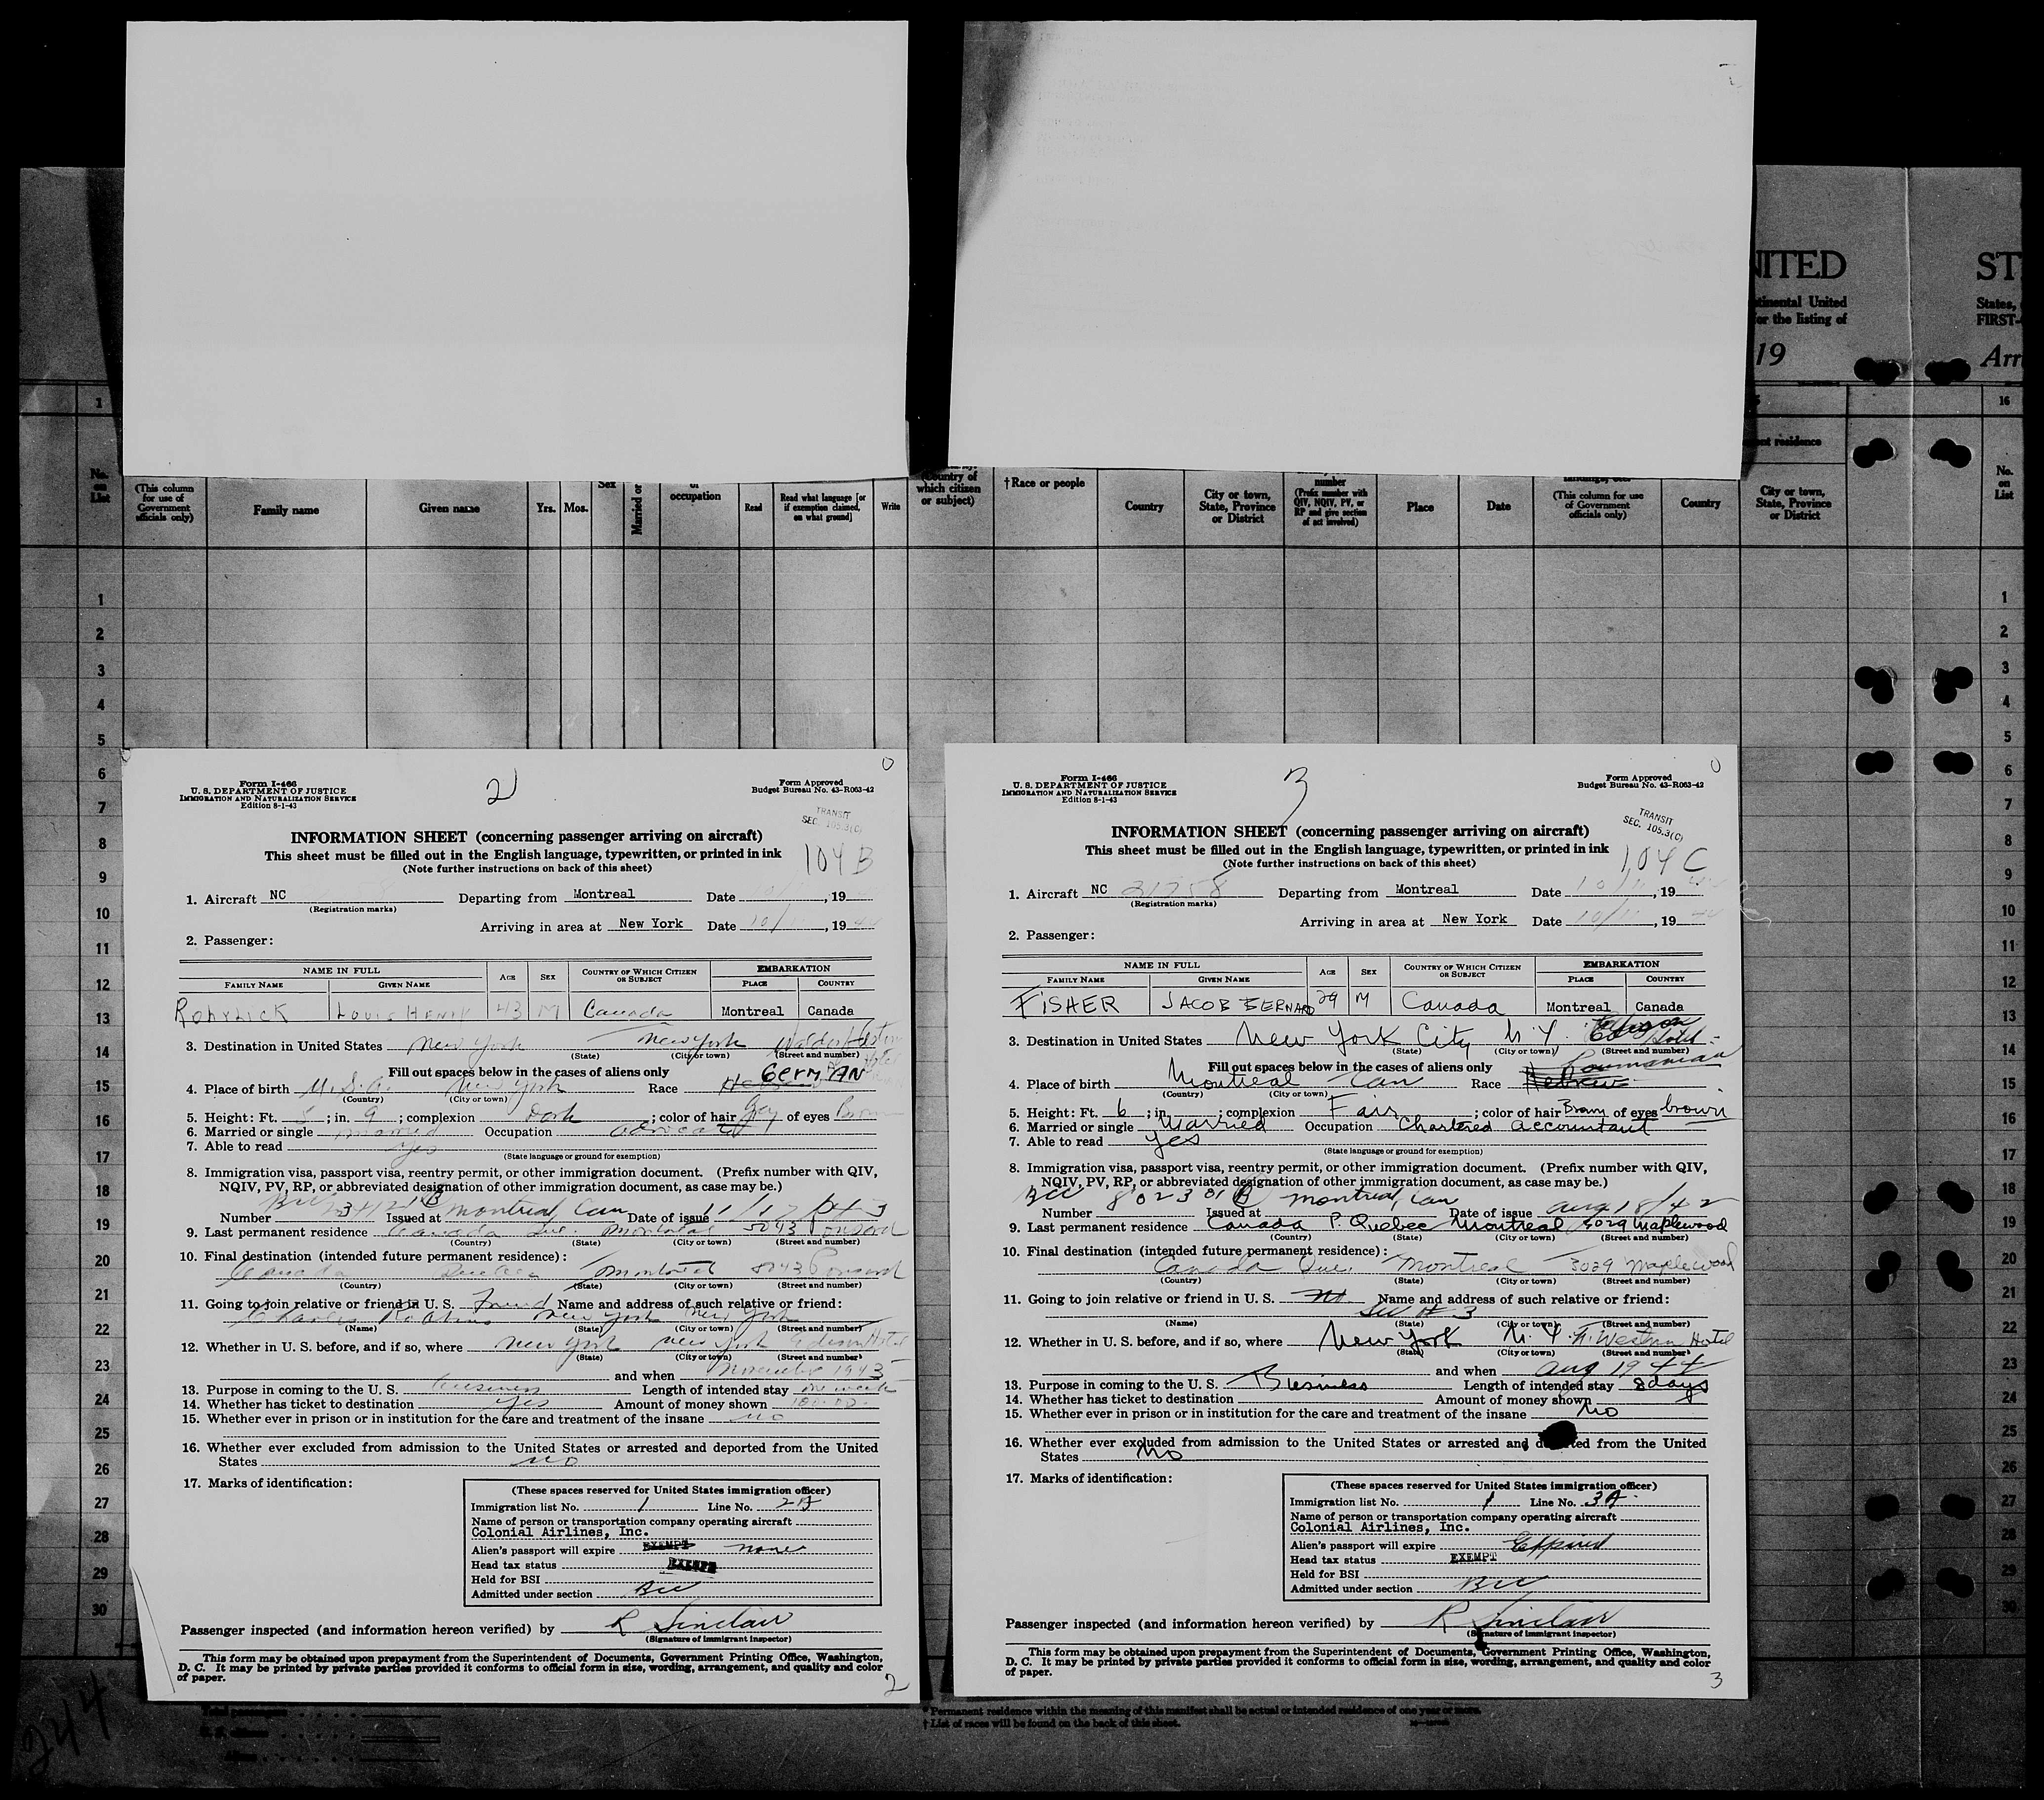 NITED
ST
tinental United
States,
or the listing of
FIRST-
19
Arr
1
16
ent residence
No. on List
(This column for use of Government officials only)
Family name
Given name
Yrs.
Mos.
Sex
Married or
of occupation
Read
Read what language [or if exemption claimed, on what ground]
Write
(Country of which citizen or subject)
†Race or people
Country
City or town, State, Province or District
number (Prefix number with QIV, NQIV, PV, or RP and give section of act involved)
Place
Date
(This column for use of Government officials only)
Country
City or town, State, Province or District
No. on List
1
2
3
4
5
6
7
8
9
10
11
12
13
14
15
16
17
18
19
20
21
22
23
24
25
26
27
28
29
30
Form I-466
U. S. DEPARTMENT OF JUSTICE
IMMIGRATION AND NATURALIZATION SERVICE
Edition 8-1-43
2
Form Approved
Budget Bureau No. 43-R063-42
TRANSIT
SEC. 105.3(C)
INFORMATION SHEET (concerning passenger arriving on aircraft)
This sheet must be filled out in the English language, typewritten, or printed in ink
104 B
(Note further instructions on back of this sheet)
1. Aircraft NC Departing from Montreal Date , 19
(Registration marks)
Arriving in area at New York Date 10/ , 19
2. Passenger:
NAME IN FULL AGE SEX COUNTRY OF WHICH CITIZEN OR SUBJECT EMBARKATION
FAMILY NAME GIVEN NAME PLACE COUNTRY
LOUIS HENRY 43 M Canada Montreal Canada
3. Destination in United States New York New York
(State) (City or town) (Street and number)
Fill out spaces below in the cases of aliens only
4. Place of birth U.S.A. New York Race Hebrew GERMAN
(Country) (City or town)
5. Height: Ft. 5; in. 9; complexion Dark; color of hair Grey of eyes Brown
6. Married or single married Occupation advocate
7. Able to read yes
(State language or ground for exemption)
8. Immigration visa, passport visa, reentry permit, or other immigration document. (Prefix number with QIV,
NQIV, PV, RP, or abbreviated designation of other immigration document, as case may be.)
Number BCC Issued at Montreal, Can Date of issue 11/17/43
9. Last permanent residence Canada Que. Montreal 5043
(Country) (State) (City or town) (Street and number)
10. Final destination (intended future permanent residence):
Canada Quebec Montreal
(Country) (State) (City or town) (Street and number)
11. Going to join relative or friend in U. S. Friend Name and address of such relative or friend:
Charles New York New York
(Name) (State) (City or town) (Street and number)
12. Whether in U. S. before, and if so, where New York New York Edison Hotel
(State) (City or town) (Street and number)
and when November 1943
13. Purpose in coming to the U. S. business Length of intended stay one week
14. Whether has ticket to destination yes Amount of money shown 100.00
15. Whether ever in prison or in institution for the care and treatment of the insane no
16. Whether ever excluded from admission to the United States or arrested and deported from the United
States no
17. Marks of identification:
(These spaces reserved for United States immigration officer)
Immigration list No. 1 Line No. 2
Name of person or transportation company operating aircraft
Colonial Airlines, Inc.
Alien's passport will expire EXEMPT none
Head tax status EXEMPT
Held for BSI
Admitted under section BCC
Passenger inspected (and information hereon verified) by R Sinclair
(Signature of immigrant inspector)
This form may be obtained upon prepayment from the Superintendent of Documents, Government Printing Office, Washington,
D. C. It may be printed by private parties provided it conforms to official form in size, wording, arrangement, and quality and color
of paper.
2
Form I-466
U. S. DEPARTMENT OF JUSTICE
IMMIGRATION AND NATURALIZATION SERVICE
Edition 8-1-43
3
Form Approved
Budget Bureau No. 43-R063-42
TRANSIT
SEC. 105.3(C)
INFORMATION SHEET (concerning passenger arriving on aircraft)
This sheet must be filled out in the English language, typewritten, or printed in ink
104 C
(Note further instructions on back of this sheet)
1. Aircraft NC 21758 Departing from Montreal Date 10/11, 19
(Registration marks)
Arriving in area at New York Date 10/11, 19
2. Passenger:
NAME IN FULL AGE SEX COUNTRY OF WHICH CITIZEN OR SUBJECT EMBARKATION
FAMILY NAME GIVEN NAME PLACE COUNTRY
FISHER JACOB BERNARD 29 M Canada Montreal Canada
3. Destination in United States New York City N.Y. Edison Hotel
(State) (City or town) (Street and number)
Fill out spaces below in the cases of aliens only
4. Place of birth Montreal Can Race Hebrew Roumanian
(Country) (City or town)
5. Height: Ft. 6; in. ; complexion Fair; color of hair Brown of eyes brown
6. Married or single Married Occupation Chartered Accountant
7. Able to read Yes
(State language or ground for exemption)
8. Immigration visa, passport visa, reentry permit, or other immigration document. (Prefix number with QIV,
NQIV, PV, RP, or abbreviated designation of other immigration document, as case may be.)
Number BCC 802301B Issued at Montreal, Can Date of issue Aug 18/42
9. Last permanent residence Canada P. Quebec Montreal 3029 Maplewood
(Country) (State) (City or town) (Street and number)
10. Final destination (intended future permanent residence):
Canada Que. Montreal 3029 Maplewood
(Country) (State) (City or town) (Street and number)
11. Going to join relative or friend in U. S. No Name and address of such relative or friend:
See # 3
(Name) (State) (City or town) (Street and number)
12. Whether in U. S. before, and if so, where New York N.Y. Western Hotel
(State) (City or town) (Street and number)
and when Aug 1944
13. Purpose in coming to the U. S. Business Length of intended stay 8 days
14. Whether has ticket to destination Amount of money shown
15. Whether ever in prison or in institution for the care and treatment of the insane No
16. Whether ever excluded from admission to the United States or arrested and deported from the United
States No
17. Marks of identification:
(These spaces reserved for United States immigration officer)
Immigration list No. 1 Line No. 3
Name of person or transportation company operating aircraft
Colonial Airlines, Inc.
Alien's passport will expire Expired
Head tax status EXEMPT
Held for BSI
Admitted under section BCC
Passenger inspected (and information hereon verified) by R Sinclair
(Signature of immigrant inspector)
This form may be obtained upon prepayment from the Superintendent of Documents, Government Printing Office, Washington,
D. C. It may be printed by private parties provided it conforms to official form in size, wording, arrangement, and quality and color
of paper.
3
244
* Permanent residence within the meaning of this manifest shall be actual or intended residence of one year or more.
† List of races will be found on the back of this sheet.